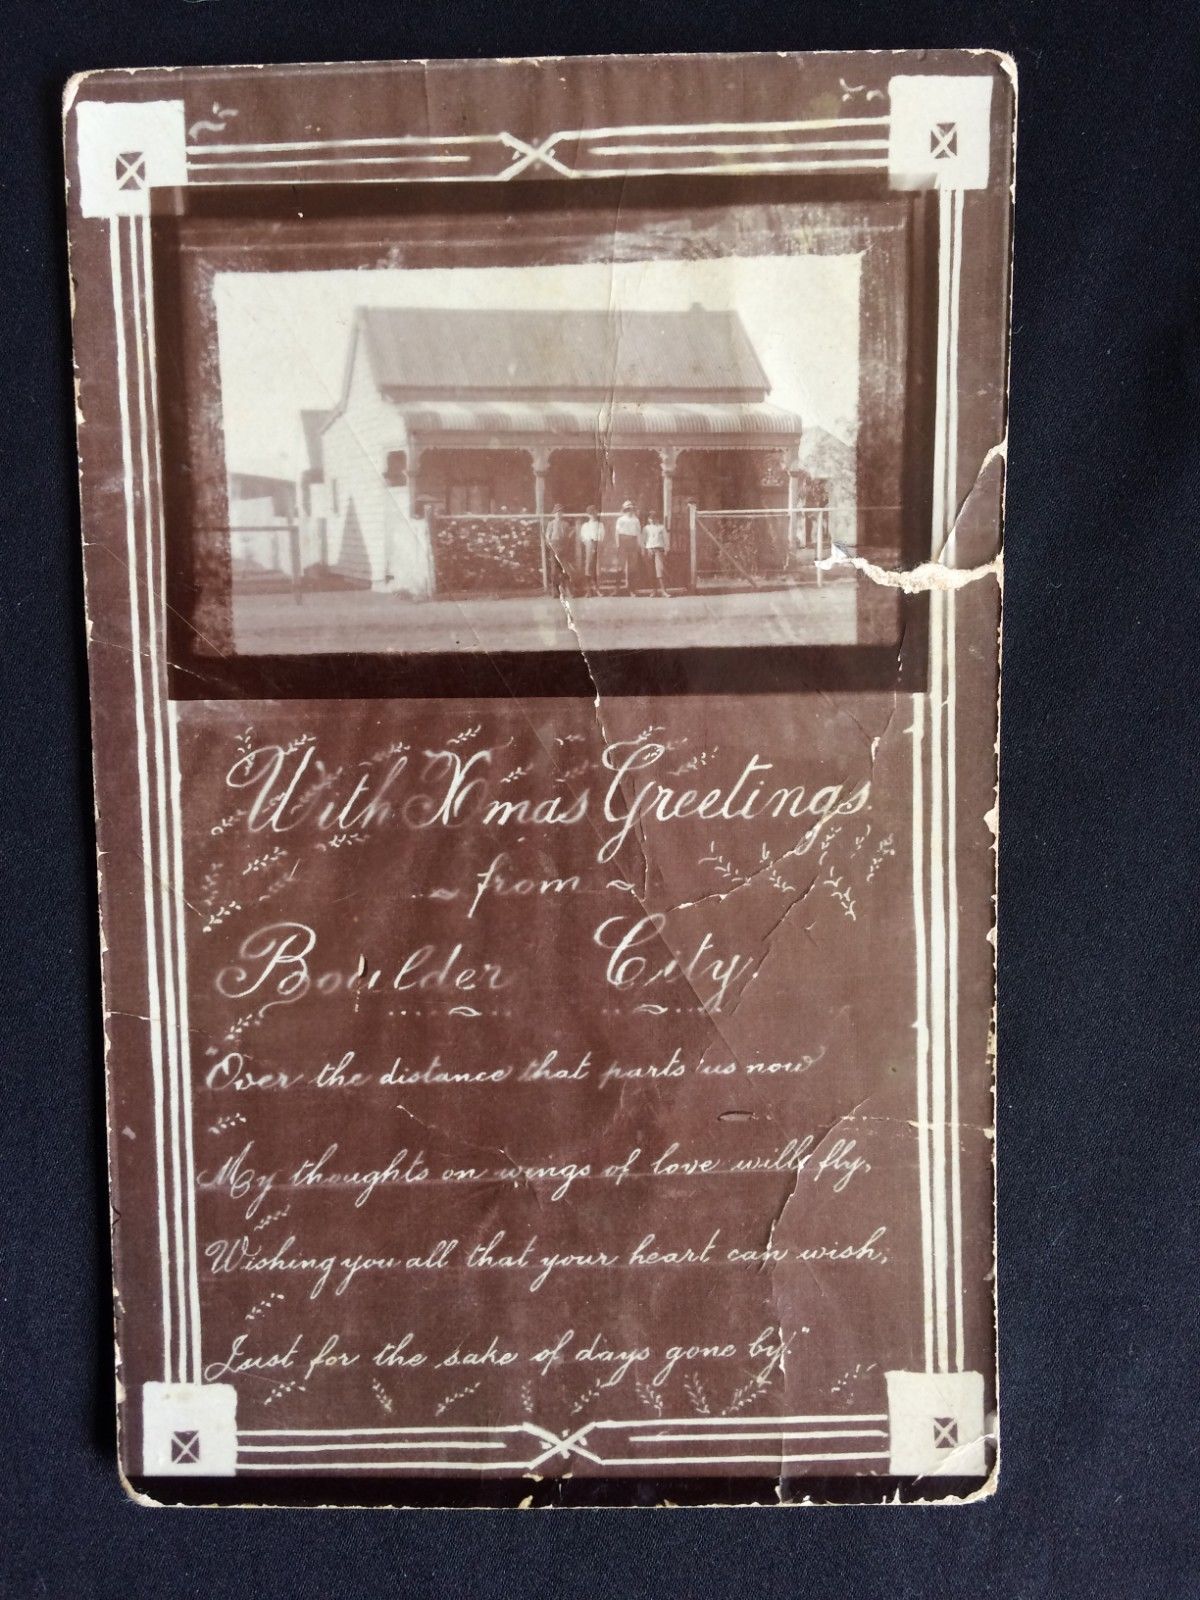 With Xmas Greetings
from
Boulder City.
"Over the distance that parts us now
My thoughts on wings of love will fly,
Wishing you all that your heart can wish,
Just for the sake of days gone by."